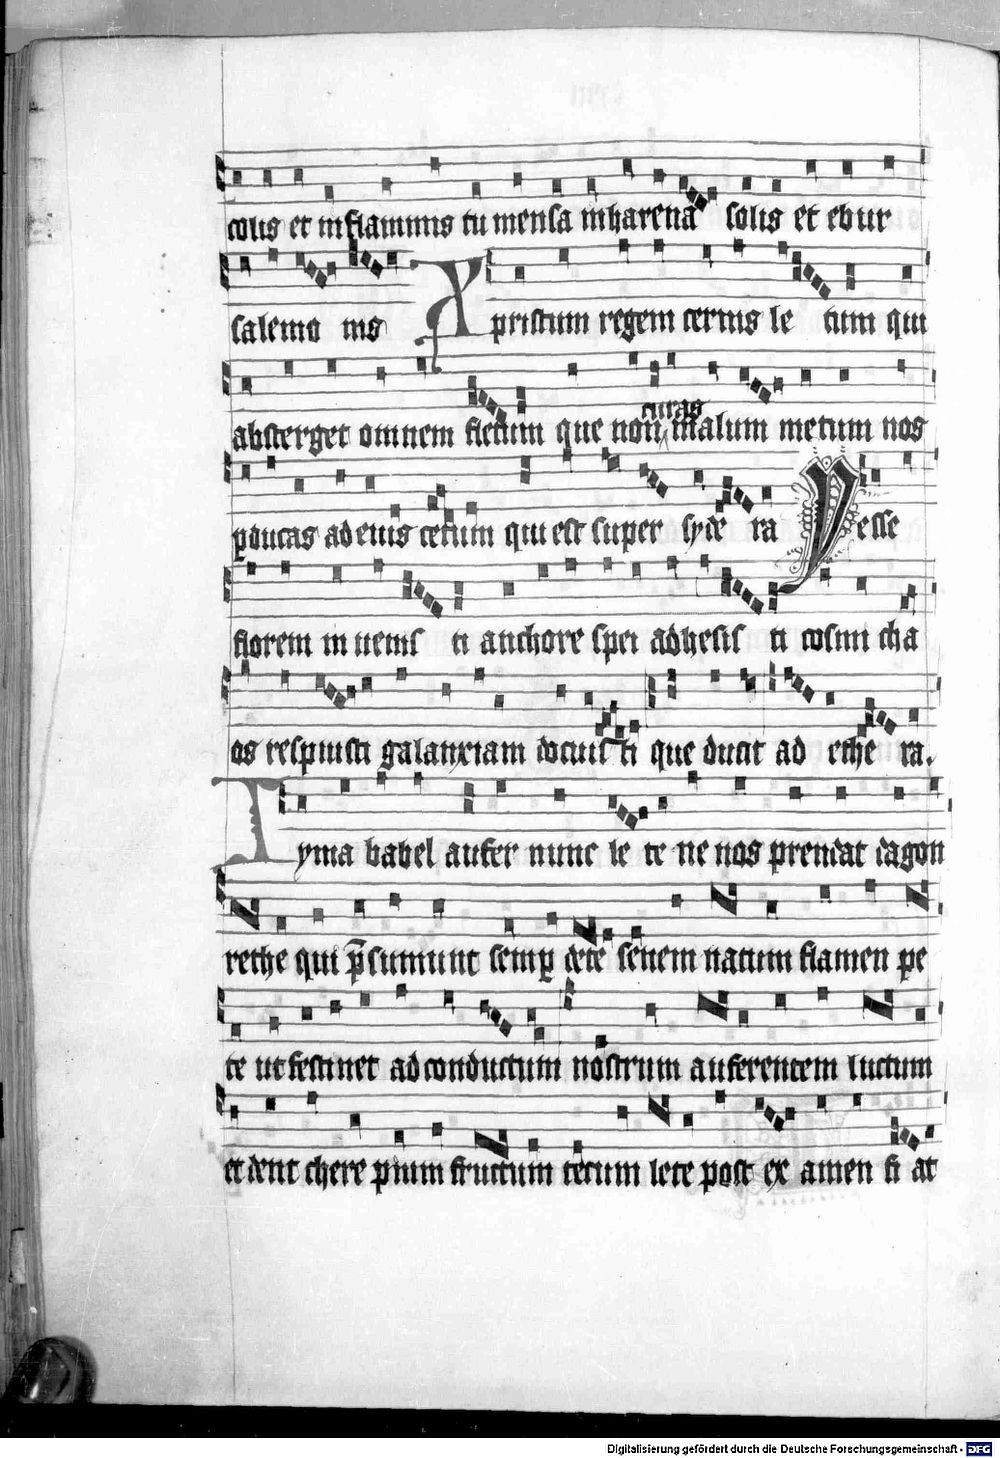 colis et in flammis tu mensa in harena solis et ebur
salemo nis Xpristum regem cernis le tum qui
absterget omnem fletum que non malum metum nos
curas
ꝑducas ad euis cetum qui est super syde ra Jesse
florem in uenis ti anchore spei adhesis ti cosmi cha
os respuisti galanxiam docuis ti que ducit ad ethe ra.
Tyma babel aufer nunc le te ne nos prendat dagon
rethe qui p̄sumunt semꝑ de te senem natum flamen pe
te ut festinet ad conductum nostrum auferentem luctum
et dent chere pium fructum tecum lete post ex amen fi at
Digitalisierung gefördert durch die Deutsche Forschungsgemeinschaft - DFG